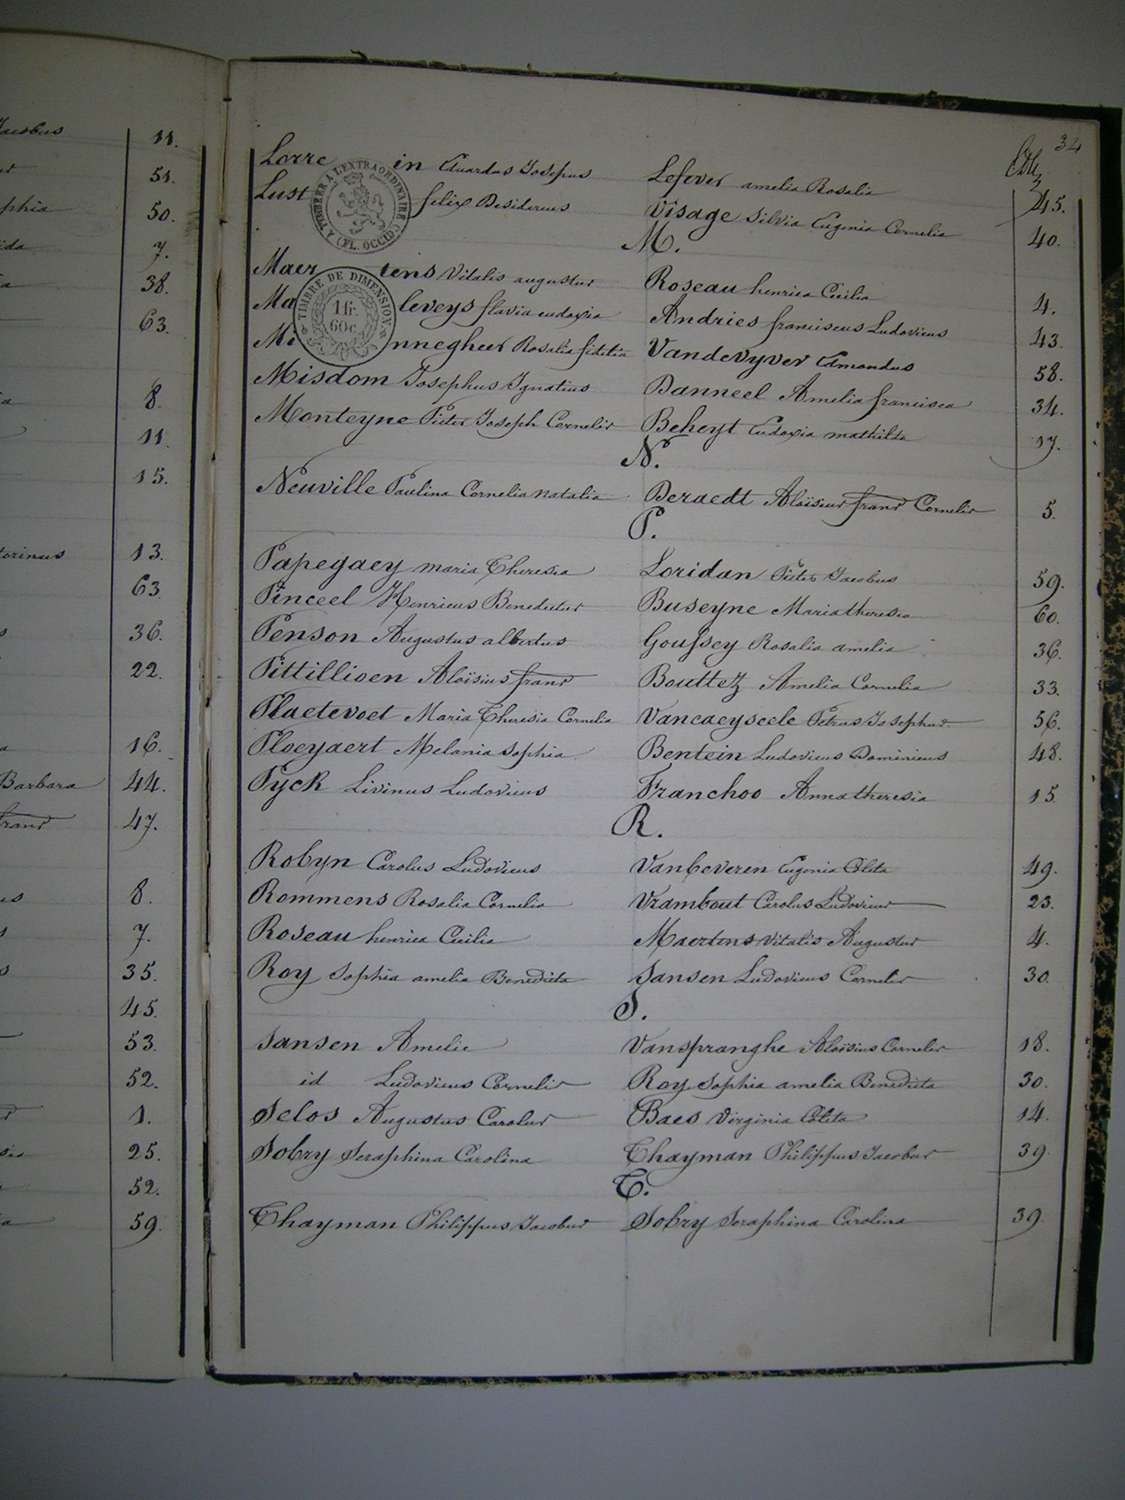 34
Jacobus 11.
51.
phia 50.
ida 7.
38.
63.
8.
11.
15.
torinus 13.
63
36.
22.
16.
Barbara 44.
franr 47.
8.
7.
35.
45.
53.
52.
1.
25.
52.
59.
Lorre in Eduardus Josephus Lefever amelia Rosalia 45.
Lust felix Desiderius Visage Silvia Eugenia Cornelia 40.
TIMBRER A L'EXTRAORDINAIRE (FL. OCCID.)
M.
Maer tens Vitalis augustus Roseau henrica Cecilia 4.
Ma leveys flavia eudoxia Andries franciscus Ludovicus 43.
TIMBRE DE DIMENSION
1 fr.
60 c.
Mi nnegheer Rosalia fidelia Vandevyver Edmondus 58.
Misdom Josephus Ignatius Danneel Amelia francisca 34.
Monteyne Pieter Joseph Cornelis Beheyt Eudoxia mathilda 17.
N.
Neuville Paulina Cornelia natalia Deraedt Aloïsius franr Cornelis 5.
P.
Papegaey maria Theresia Loridan Pieter Jacobus 59.
Pinceel Henricus Benedictus Buseyne Maria theresia 60.
Penson Augustus albertus Goussey Rosalia amelia 36.
Pittillioen Aloïsius franr Bouttez Amelia Cornelia 33.
Plaetevoet Maria Theresia Cornelia Vancaeyseele Petrus Josephus 56.
Ploeyaert Melania Sophia Bentein Ludovicus Dominicus 48.
Pyck Livinus Ludovicus Franchoo Anna theresia 15
R.
Robyn Carolus Ludovicus Vanbeveren Eugenia Coleta 49.
Rommens Rosalia Cornelia Vrambout Carolus Ludovicus 23.
Roseau henrica Cecilia Maertens Vitalis Augustus 4.
Roy Sophia amelia Benedicta Sansen Ludovicus Cornelis 30
S.
Sansen Amelie Vanspranghe Aloïsius Cornelis 18.
id Ludovicus Cornelis Roy Sophia amelia Benedicta 30.
Selos Augustus Carolus Baes Virginia Coleta 14.
Sobry Seraphina Carolina Thayman Philippus Jacobus 39
T.
Thayman Philippus Jacobus Sobry Seraphina Carolina 39.